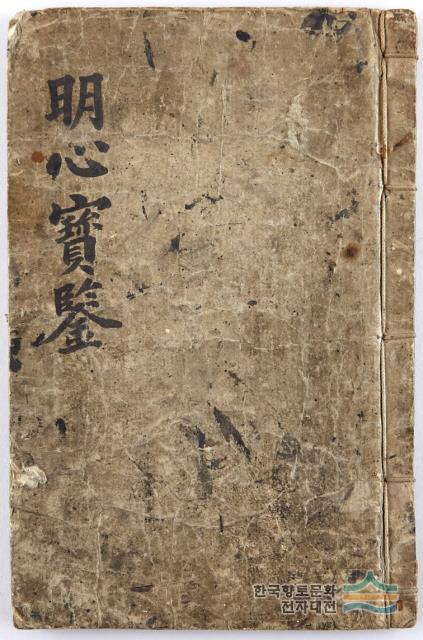 明心寶鑑
한국향토문화
전자대전